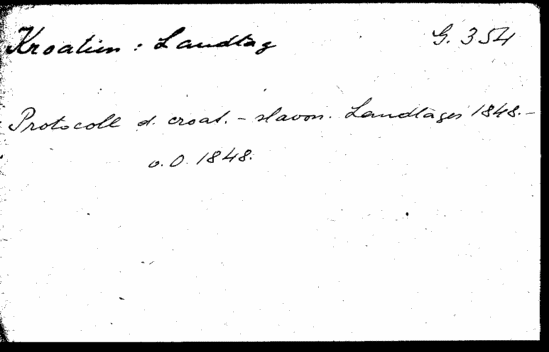 Kroatien : Landtag G. 354
Protocoll d. croat. - slavon. Landtages 1848. -
o. O. 1848.